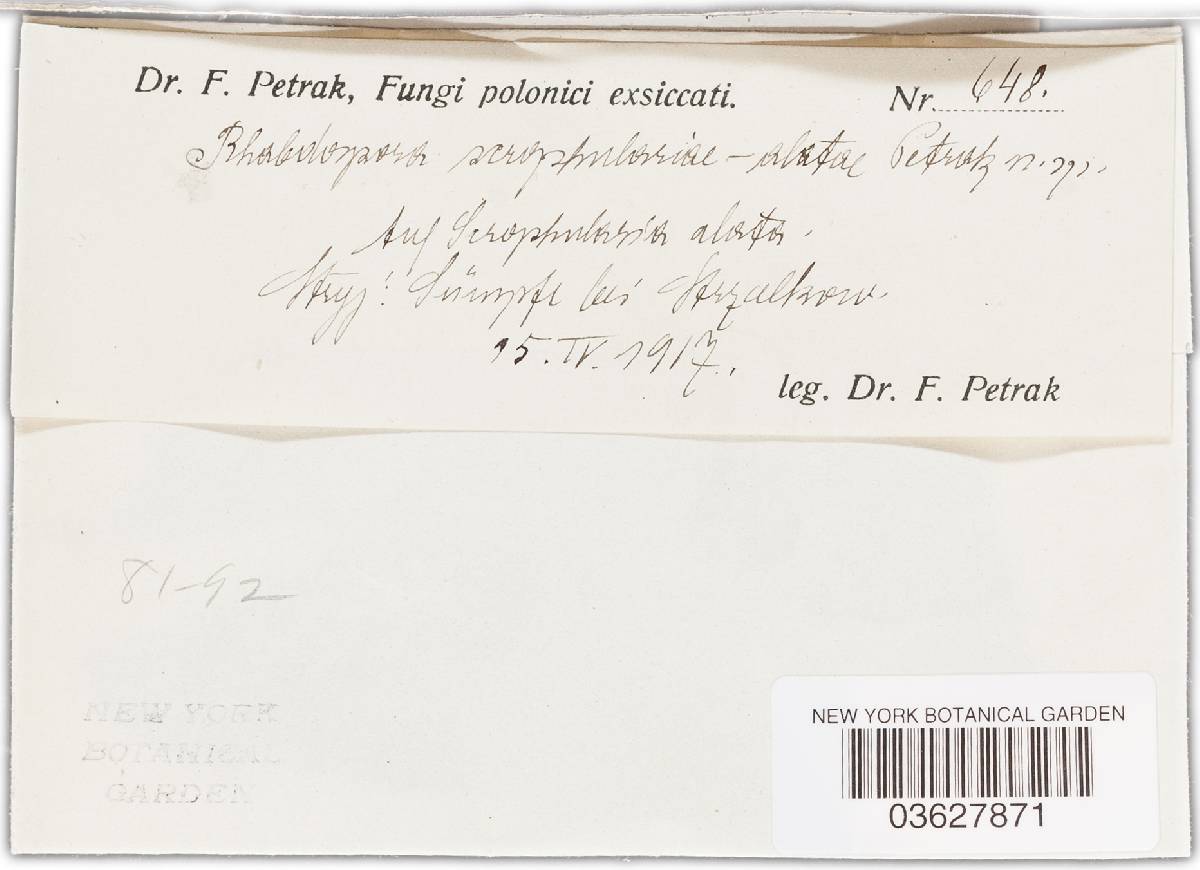 Dr. F. Petrak, Fungi polonici exsiccati. Nr. 648.
Rhabdospora scrophulariae-alatae Petrak n. sp.
Auf Scrophularia alata.
Stryj: Sümpfe bei Strzalkow.
15. IV. 1917.
leg. Dr. F. Petrak
81-92
NEW YORK
BOTANICAL
GARDEN
NEW YORK BOTANICAL GARDEN
03627871